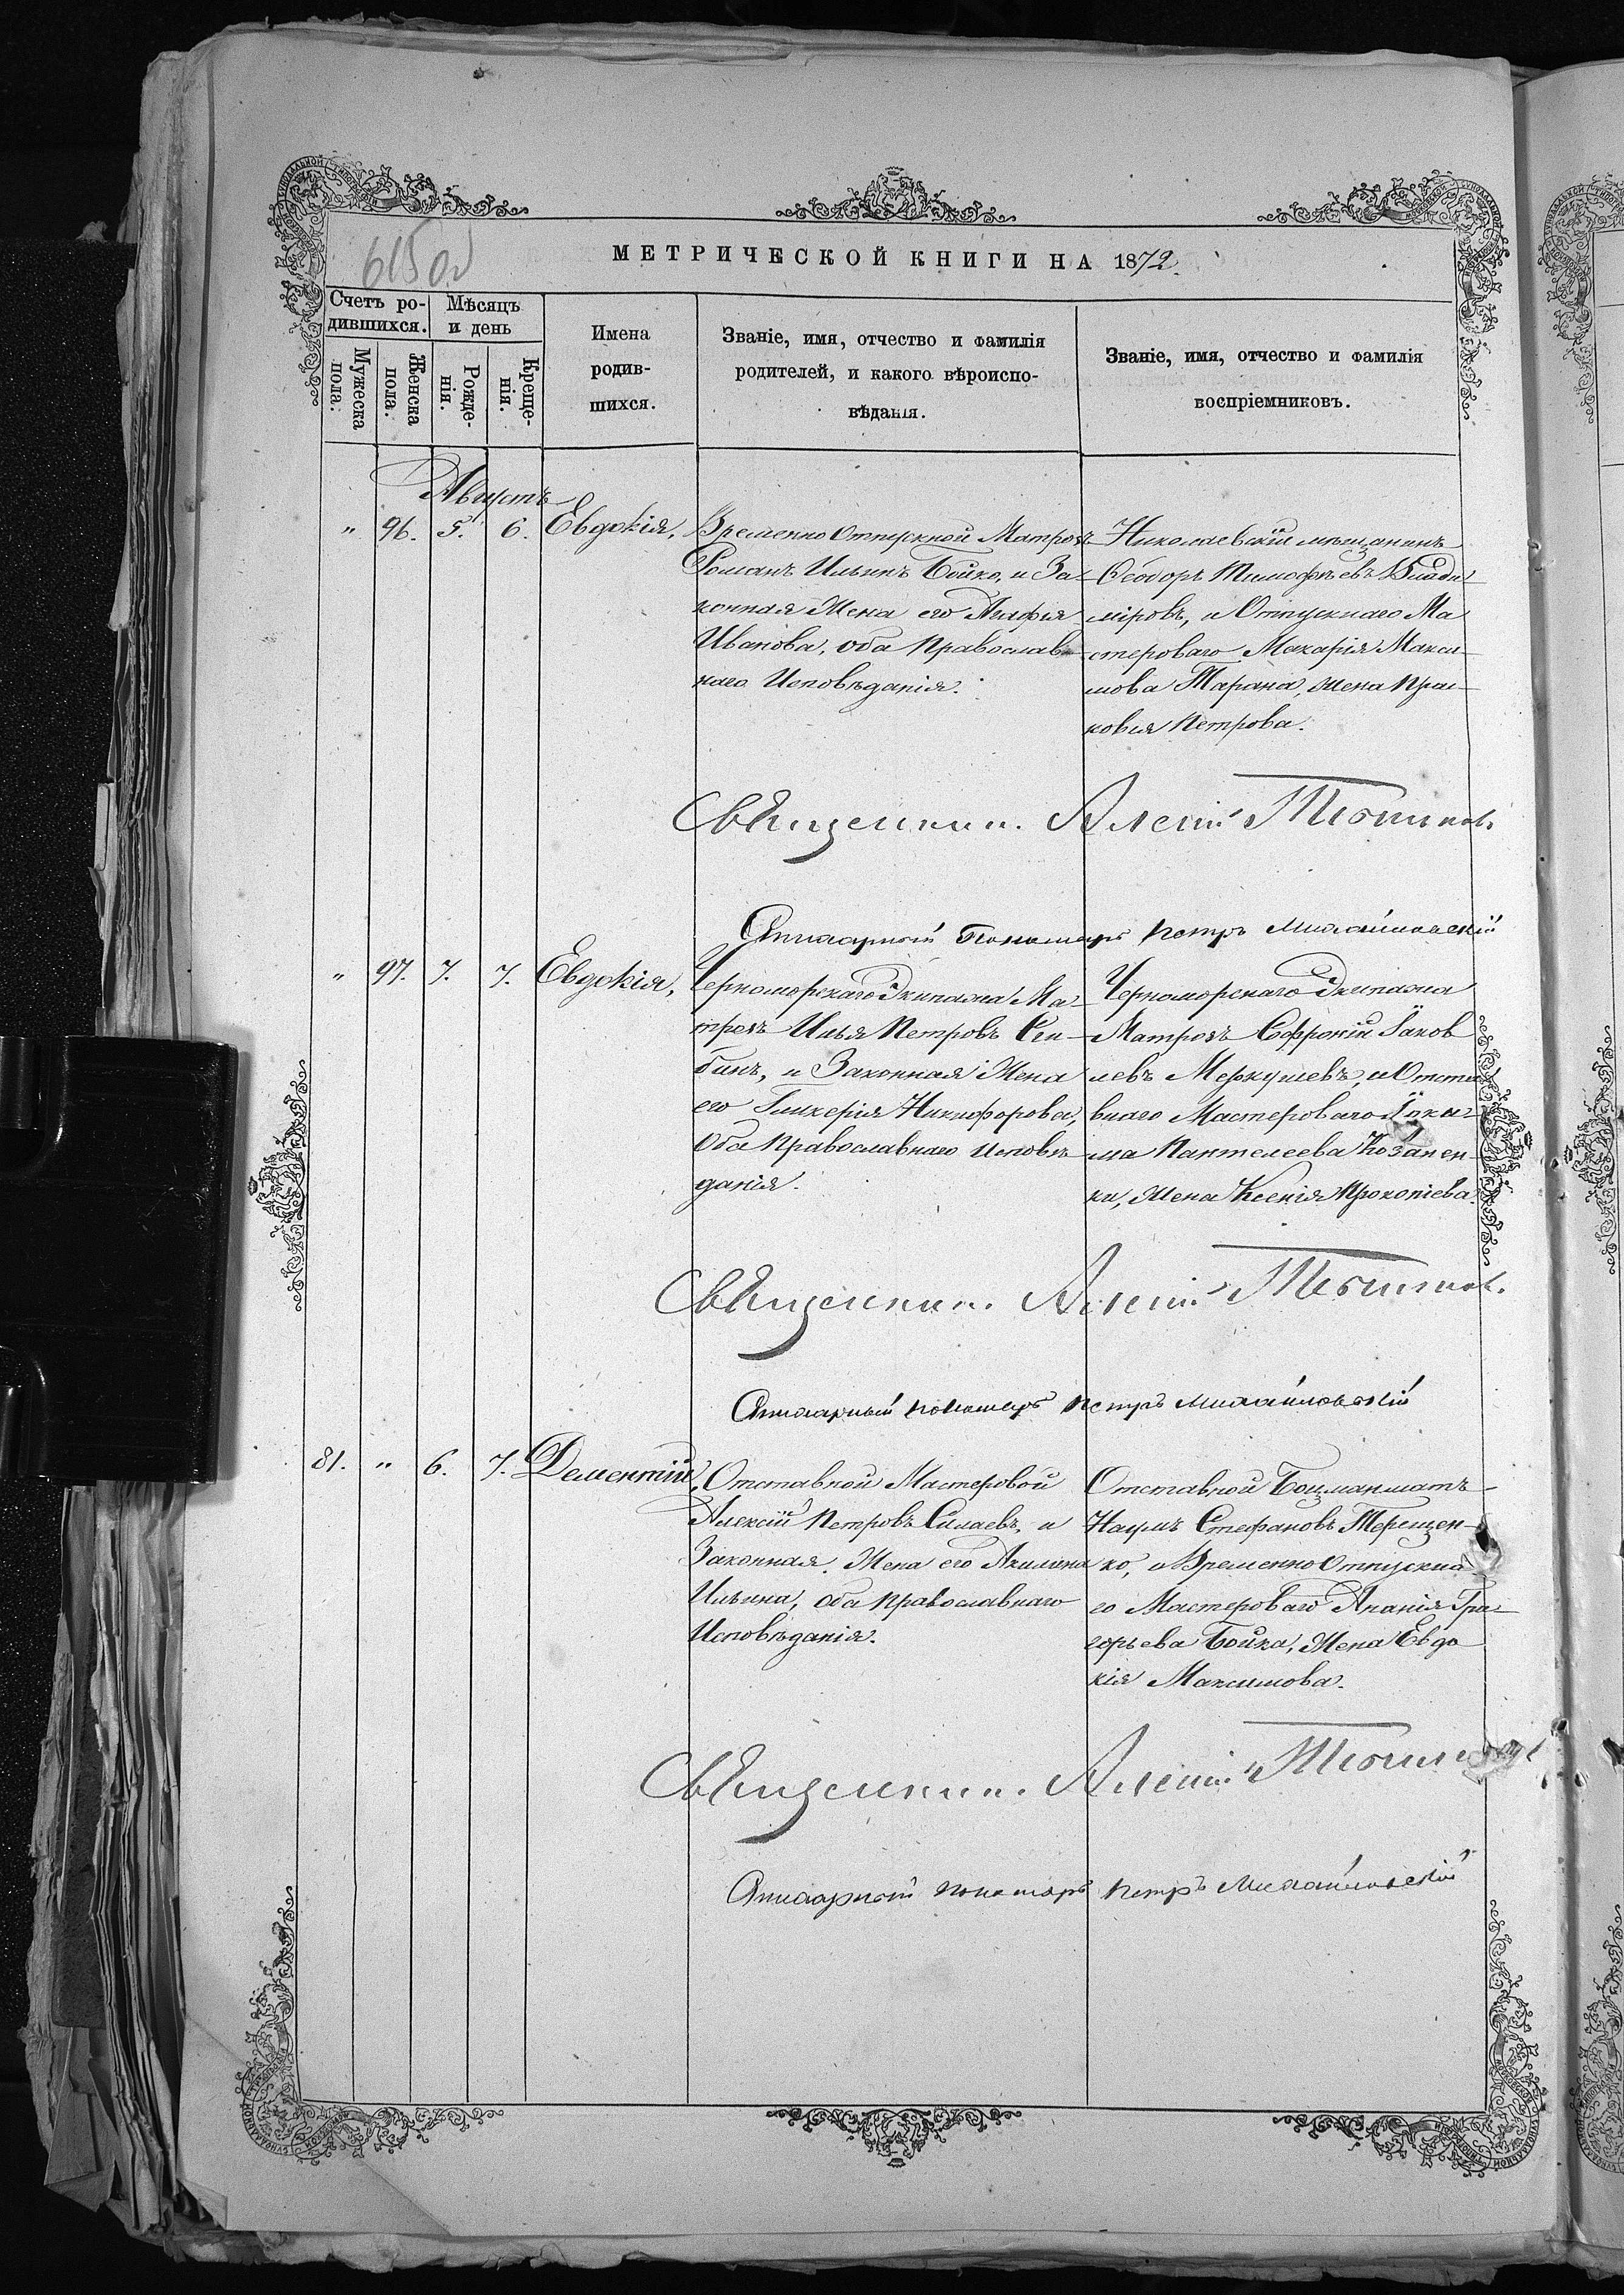 615 об
МЕТРИЧЕСКОЙ КНИГИ НА 1872.
Счетъ ро-
дившихся.
Мѣсяцъ
и день
Мужеска
пола.
Женска
пола.
Рожде-
нія.
Креще-
нія.
Имена
родив-
шихся.
Званіе, имя, отчество и фамилія
родителей, и какого вѣроиспо-
вѣданія.
Званіе, имя, отчество и фамилія
воспріемниковъ.
Августъ
" 96. 5. 6. Евдокія,
Временно Отпускной Матрозъ
Романъ Ильинъ Бойко, и За-
конная Жена его Агафія
Иванова, оба Православ-
наго Исповѣданія.
Николаевскій мѣщанинъ
Ѳеодоръ Тимофѣевъ Влади-
міровъ, и Отпускнаго Ма
стероваго Макарія Макси-
мова Тарана, жена Прас-
ковія Петрова.
Священникъ Алексій
Петръ Михайловскій
" 97. 7. 7. Евдокія,
Черноморскаго Экипажа Ма-
трозъ Илья Петровъ
бинъ, и Законная Жена
его Гликерія Никифорова,
Оба Православнаго Исповѣ
данія.
Черноморскаго Экипажа
Матрозъ Софроній Іаков
левъ Меркушевъ, и Отста
внаго Мастероваго Іоки-
ма Пантелеева Козанен-
ки, Жена Ксенія Прокопіева.
Священникъ Алексій
Пономарь Петръ Михайловскій
81. " 6. 7. Дементій,
Отставной Мастеровой
Алексій Петровъ Силаевъ, и
Законная Жена его Акилина
Ильина, оба Православнаго
Исповѣданія.
Отставной Боцманматъ
Наумъ Стефановъ Терещен-
ко, и Временно Отпускна
го Мастероваго Ананія Гри-
горьева Бойка, Жена Евдо
кія Максимова.
Священникъ Алексій
Пономарь Петръ Михайловскій